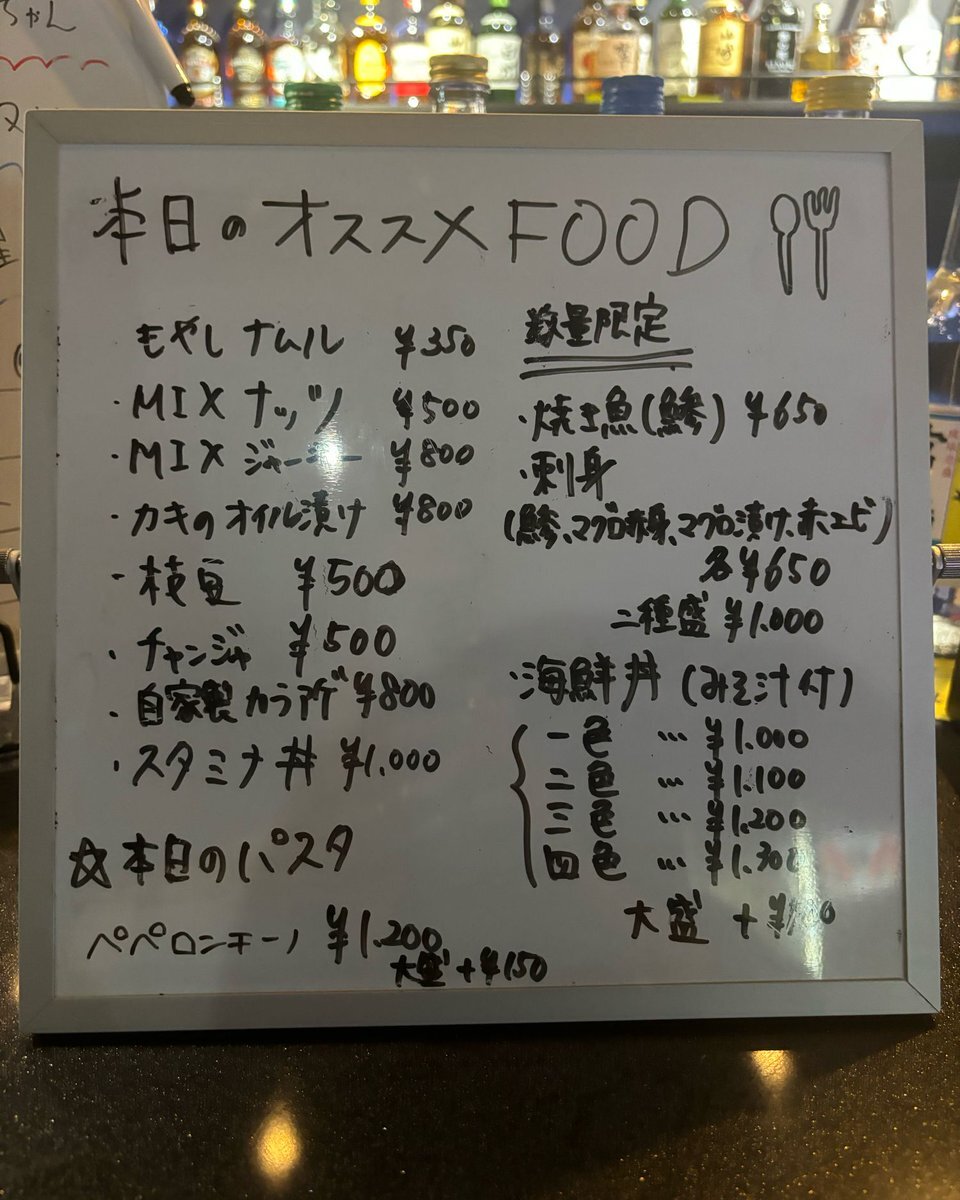 ちゃん
本日のオススメFOOD
もやしナムル ¥350
・MIXナッツ ¥500
・MIXジャーキー ¥800
・カキのオイル漬け ¥800
・枝豆 ¥500
・チャンジャ ¥500
・自家製 ¥800
・スタミナ丼 ¥1,000
☆本日のパスタ
ペペロンチーノ ¥1.200
大盛+¥150
数量限定
・焼き魚(鯵) ¥650
・刺身
(鯵、マグロ赤身、マグロ漬け、赤エビ)
各¥650
二種盛 ¥1.000
・海鮮丼 (みそ汁付)
一色 … ¥1.000
二色 … ¥1.100
三色 … ¥1.200
四色 … ¥1.300
大盛 +